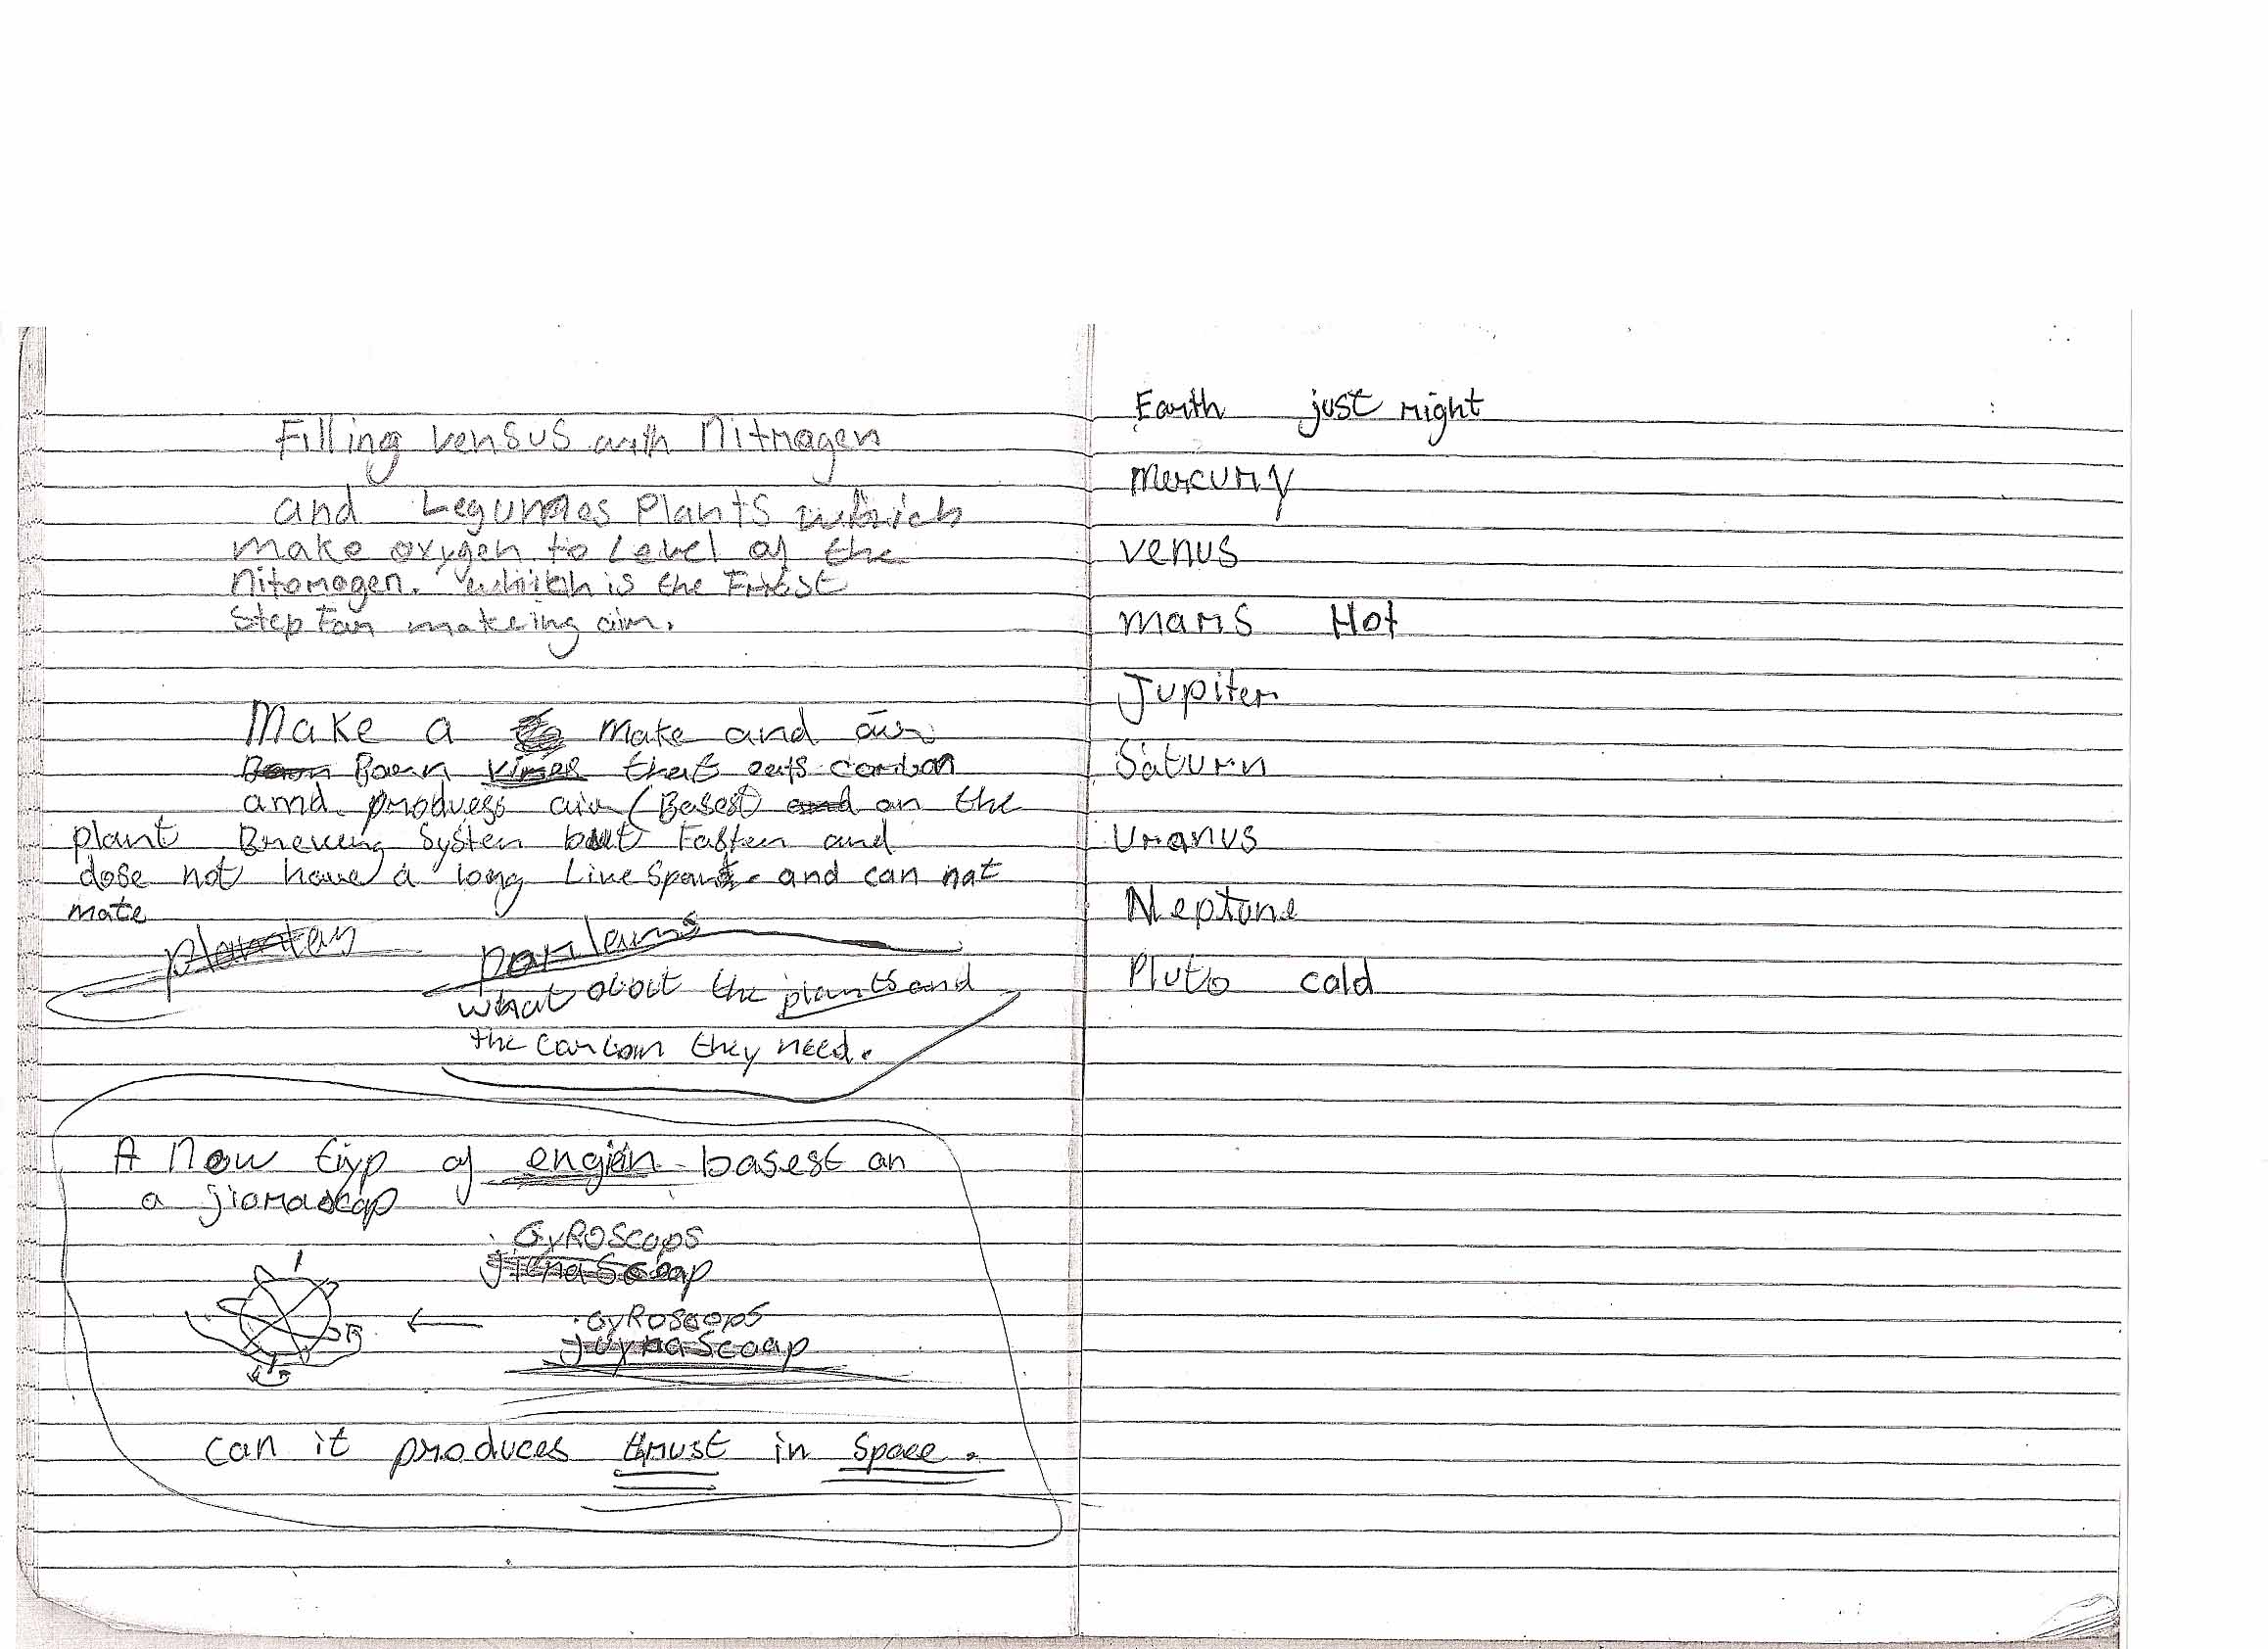 Filling Vensus with Nitrogen
and Legumes Plants which
make oxygen to Level of the
Nitomogen. which is the Frist
Step For makeing air.
Make a make and air
Born viries that eats carbon
and produess air (Basest and on the
plant Breveing System but Faster and
dose not have a long Live Span. and can not
mate
what about the plants and
the carbon they need.
A New tiyp of engin basest on
a jiroroscap
GyROScops
jienaScoap
GyROscops
juynaScoap
can it produces thrust in space.
Earth just right
Mercury
venus
mars Hot
Jupiter
Saturn
Uranus
Neptune
Pluto cold